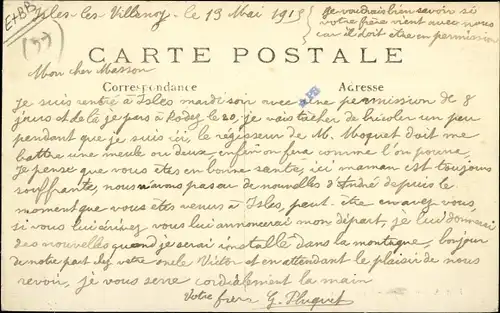 Isles-les-Villenoy - le 19 Mai 1915
Je voudrais bien savoir si
votre frère vient avec nous
car il doit être en permission
E+BB
(77)
CARTE POSTALE
Mon cher Masson
Correspondance
Adresse
Je suis rentré à Isles mardi soir avec une permission de 8
jours et de là je pars à Rodez le 20, je vais tâcher de bricoler un peu
pendant que je suis ici, le régisseur de M. Moquet doit me
battre une meule ou deux, enfin on fera comme l'on pourra,
Je pense que vous êtes en bonne santé, ici maman est toujours
souffrante, nous n'avons pas eu de nouvelles d'André depuis le
moment que vous êtes venus à Isles, peut être en avez vous,
si vous lui écrivez vous lui annoncerai mon départ, je lui donnerai
des nouvelles quand je serai installé dans la montagne, bonjour
de notre part chez votre oncle Victor et en attendant le plaisir de nous
revoir, je vous serre cordialement la main
Votre frère G. Pluquet